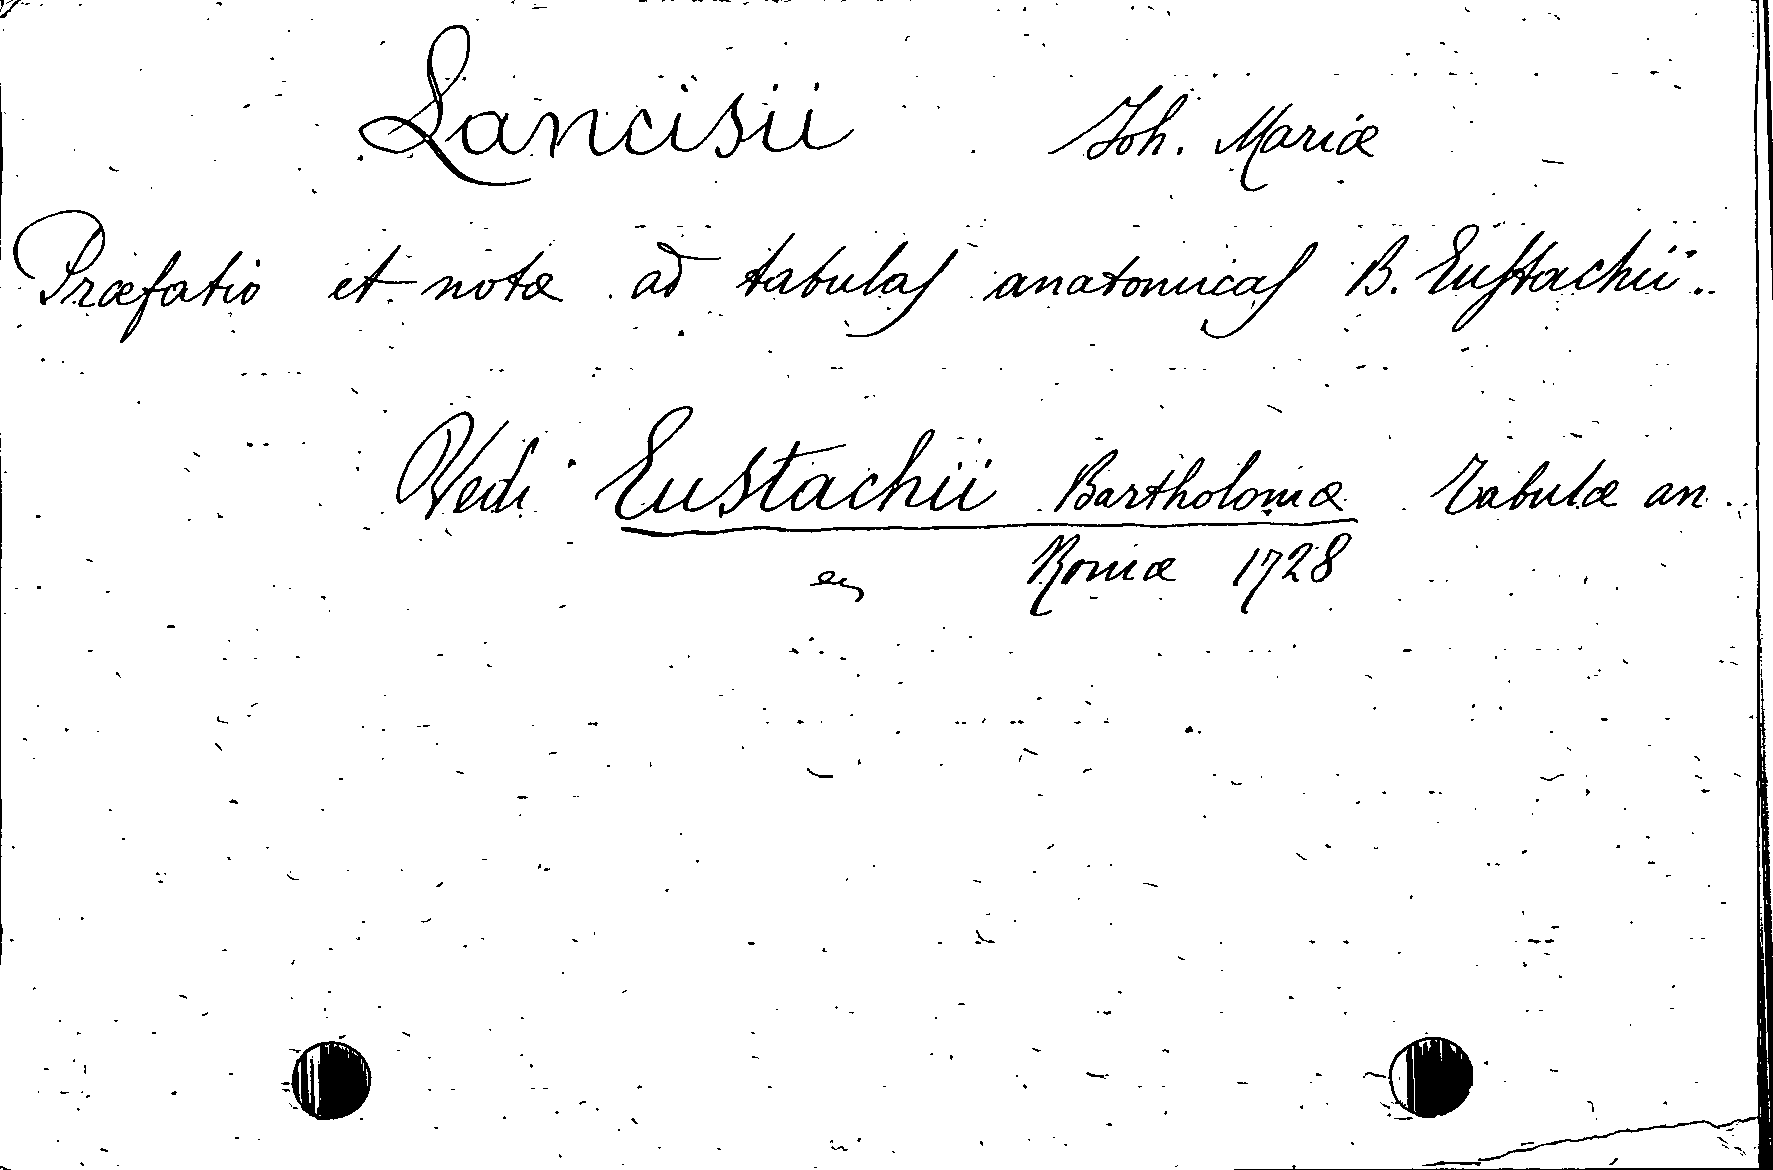 Lancisii Joh. Mariæ
Præfatio et notæ ad tabulas anatomicas B. Eustachii..
Vedi Eustachii Bartholomæ Tabulæ an..
Romæ 1728